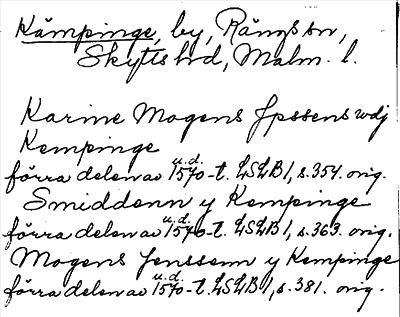 Kämpinge, by, Rängs sn,
Skytts hd, Malm. l.
Karine Mogens Jpssens wdj
Kempinge
u.d.
förra delen av 1570-t. LSLB 1, s. 354. orig.
Smiddenn y Kempinge
u.d.
förra delen av 1570-t. LSLB 1, s. 363. orig.
Mogens Jenssenn y Kempinge
u.d.
förra delen av 1570-t. LSLB 1, s. 381. orig.